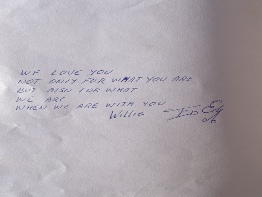 WE LOVE YOU
NOT ONLY FOR WHAT YOU ARE
BUT ALSO FOR WHAT
WE ARE
WHEN WE ARE WITH YOU
Willie